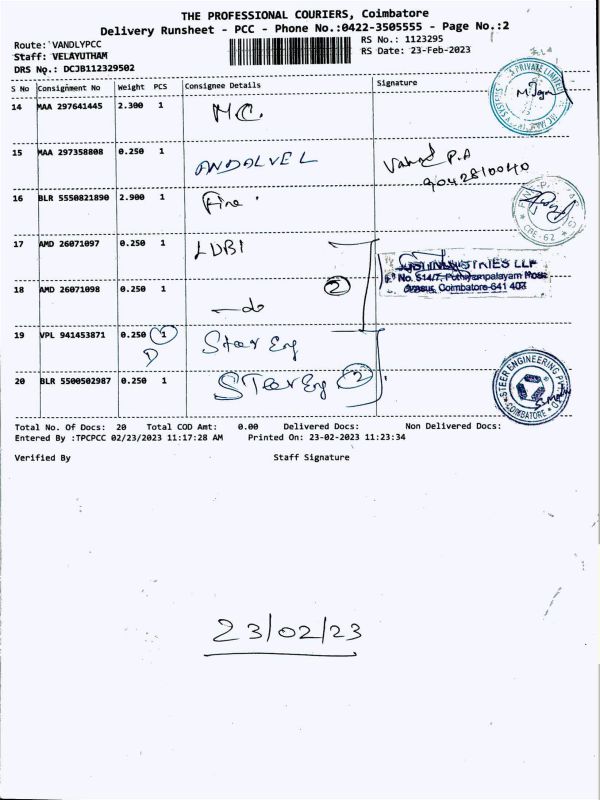 THE PROFESSIONAL COURIERS, Coimbatore
Delivery Runsheet - PCC - Phone No.:0422-3505555 - Page No.:2
Route: VANDLYPCC
RS No.: 1123295
Staff: VELAYUTHAM
RS Date: 23-Feb-2023
DRS No.: DCJB112329502
S No Consignment No Weight PCS Consignee Details Signature
14 MAA 297641445 2.300 1 M.C.
15 MAA 297358808 0.250 1 ANDALVEL
9042810040
16 BLR 5550821890 2.900 1 Fine
CBE-62
17 AMD 26071097 0.250 1 LUBI
INDUSTRIES LLP
No. 514/7, Puthiyampalayam Road
Coimbatore-641 407
18 AMD 26071098 0.250 1 -do 2
19 VPL 941453871 0.250 1 Steer Eng
D
20 BLR 5500502987 0.250 1 STeer Eng 2
STEER ENGINEERING PVT. LTD
COIMBATORE
Total No. Of Docs: 20 Total COD Amt: 0.00 Delivered Docs: Non Delivered Docs:
Entered By :TPCPCC 02/23/2023 11:17:28 AM Printed On: 23-02-2023 11:23:34
Verified By Staff Signature
23/02/23